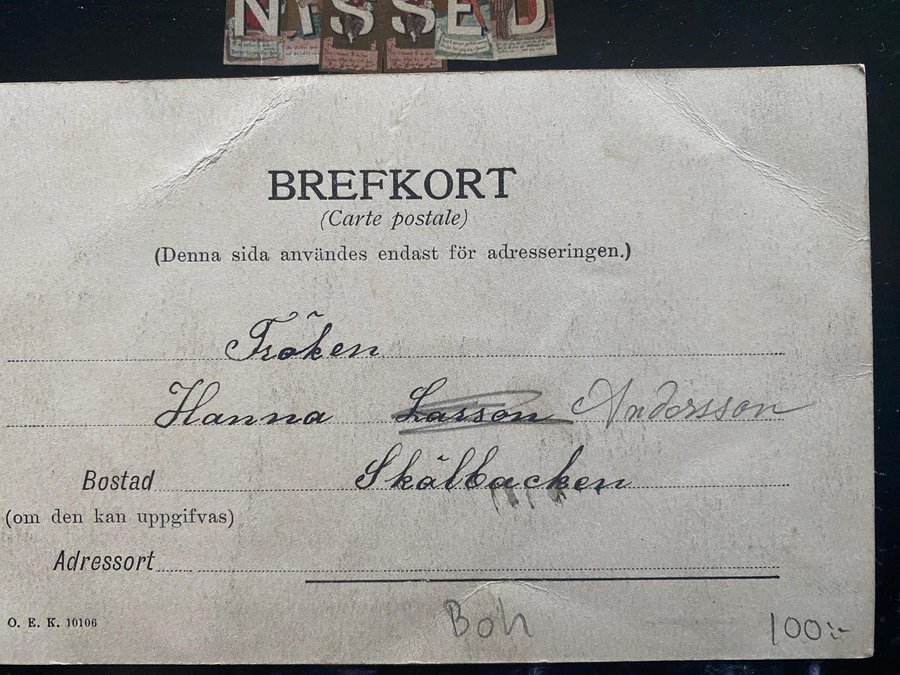 NISSED
BREFKORT
(Carte postale)
(Denna sida användes endast för adresseringen.)
Fröken
Hanna Larson Andersson
Bostad Skålbacken
(om den kan uppgifvas)
Adressort
O. E. K. 10106
Boh
100:-